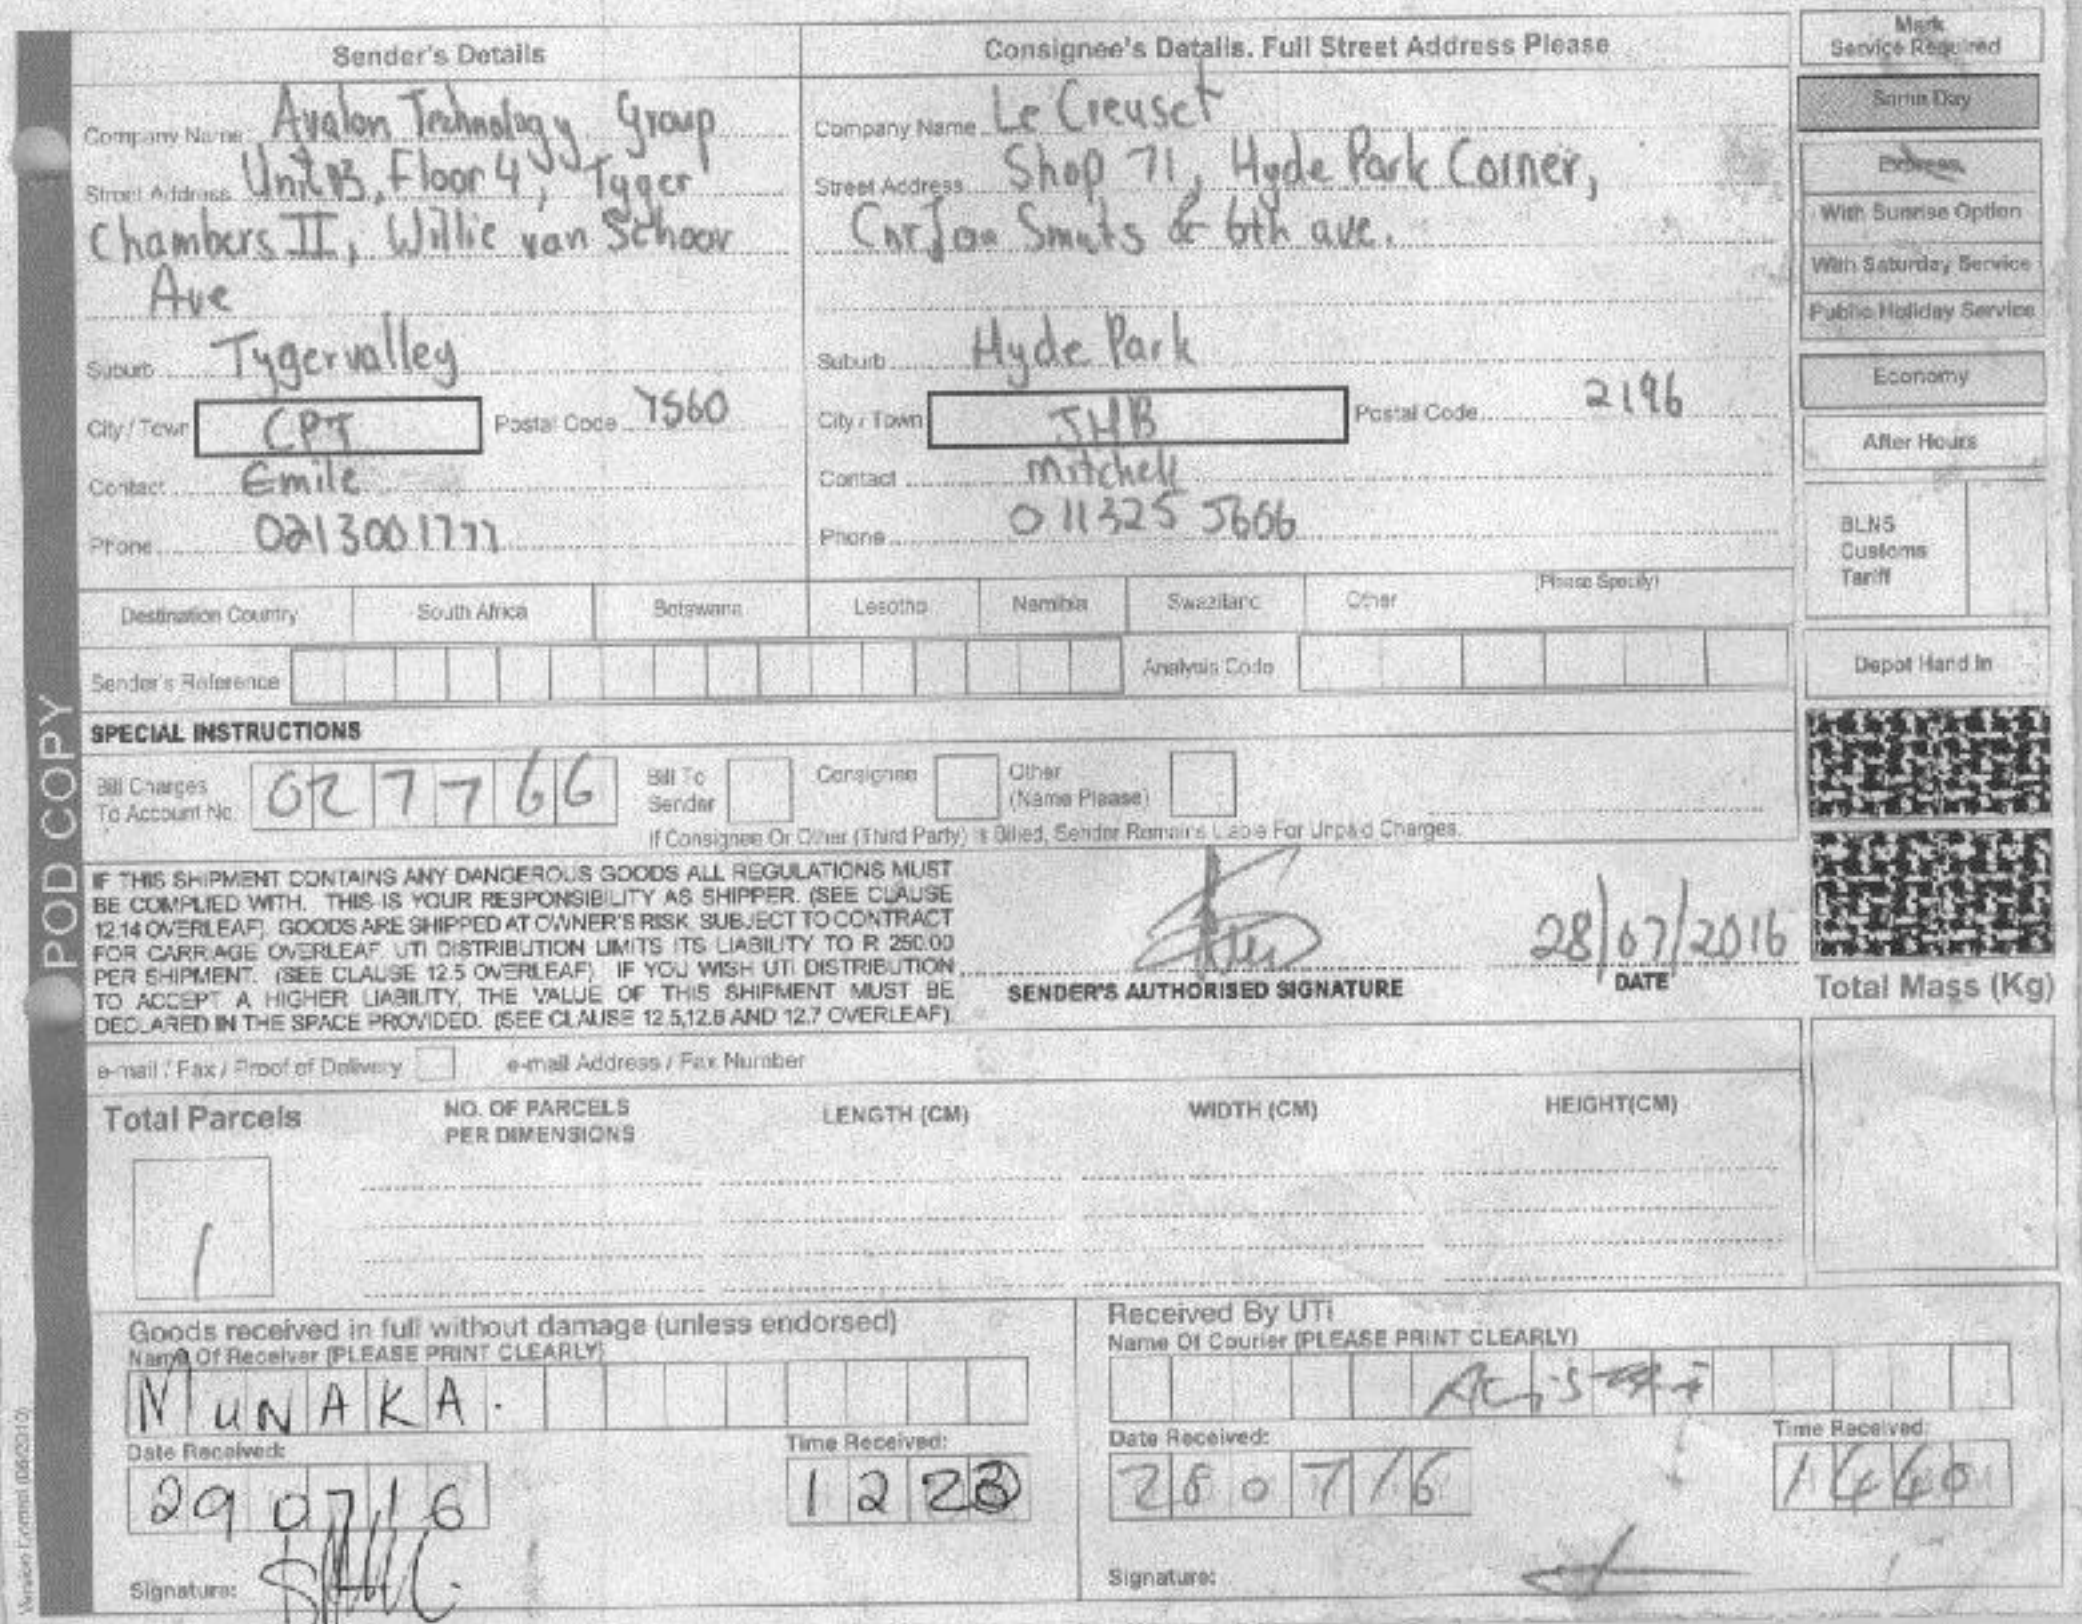 Sender's Details
Consignee's Details. Full Street Address Please
Mark
Service Required
Company Name Avalon Technology Group
Street Address Unit B3, Floor 4, Tyger
Chambers II, Willie van Schoor
Ave
Suburb Tygervalley
City / Town CPT Postal Code 7560
Contact Emile
Phone 0213001777
Company Name Le Creuset
Street Address Shop 71, Hyde Park Corner,
Cnr Jan Smuts & 6th ave.
Suburb Hyde Park
City / Town JHB Postal Code 2196
Contact Mitchell
Phone 011325 5606
Same Day
Express
With Sunrise Option
With Saturday Service
Public Holiday Service
Economy
After Hours
BLNS
Customs
Tariff
Destination Country South Africa Botswana Lesotho Namibia Swaziland Other (Please Specify)
Sender's Reference Analysis Code
Depot Hand In
SPECIAL INSTRUCTIONS
Bill Charges
To Account No. 027766
Bill To
Sender
Consignee
Other
(Name Please)
If Consignee Or Other (Third Party) is Billed, Sender Remains Liable For Unpaid Charges.
POD COPY
IF THIS SHIPMENT CONTAINS ANY DANGEROUS GOODS ALL REGULATIONS MUST
BE COMPLIED WITH. THIS IS YOUR RESPONSIBILITY AS SHIPPER. (SEE CLAUSE
12.14 OVERLEAF). GOODS ARE SHIPPED AT OWNER'S RISK SUBJECT TO CONTRACT
FOR CARRIAGE OVERLEAF. UTi DISTRIBUTION LIMITS ITS LIABILITY TO R 250.00
PER SHIPMENT. (SEE CLAUSE 12.5 OVERLEAF) IF YOU WISH UTi DISTRIBUTION
TO ACCEPT A HIGHER LIABILITY, THE VALUE OF THIS SHIPMENT MUST BE
DECLARED IN THE SPACE PROVIDED. (SEE CLAUSE 12.5,12.6 AND 12.7 OVERLEAF).
SENDER'S AUTHORISED SIGNATURE
28/07/2016
DATE
Total Mass (Kg)
e-mail / Fax / Proof of Delivery e-mail Address / Fax Number
Total Parcels
NO. OF PARCELS
PER DIMENSIONS
LENGTH (CM)
WIDTH (CM)
HEIGHT(CM)
1
Goods received in full without damage (unless endorsed)
Name Of Receiver (PLEASE PRINT CLEARLY)
MUNAKA.
Date Received:
290716
Time Received:
1223
Signature:
Received By UTi
Name Of Courier (PLEASE PRINT CLEARLY)
Date Received:
280716
Time Received:
1440
Signature: